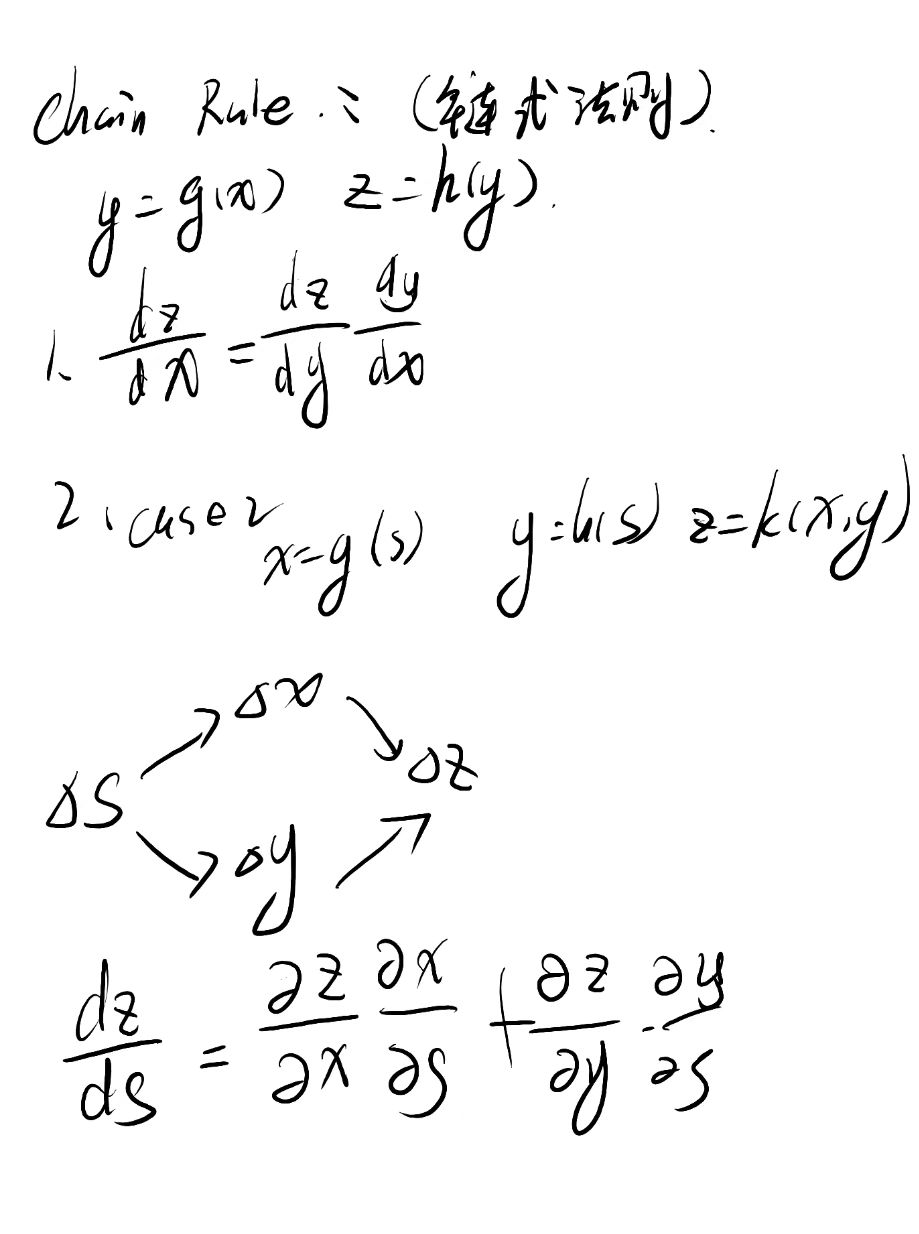 Chain Rule : (链式法则).
y=g(x) z=h(y).
1. dz/dx = dz/dy dy/dx
2. case2
x=g(s) y=h(s) z=k(x,y)
Δx
Δz
Δs
Δy
dz/ds = ∂z/∂x ∂x/∂s + ∂z/∂y · ∂y/∂s